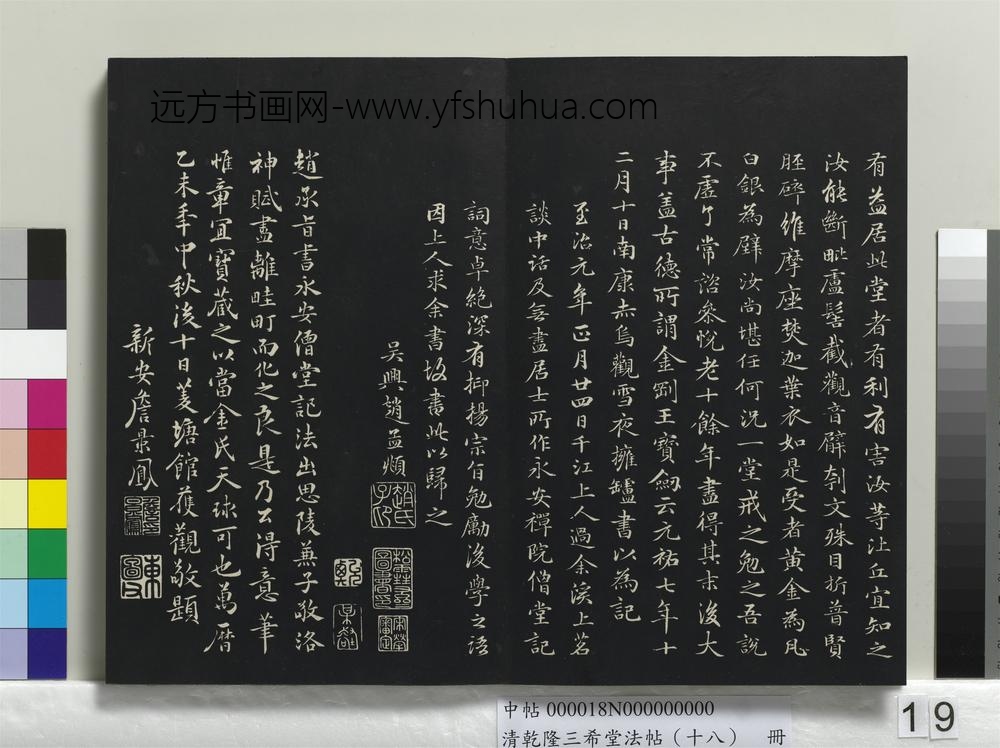 远方书画网-www.yfshuhua.com
有益居此堂者有利有害汝等比丘宜知之
汝能斷毗盧髻截觀音臂刳文殊目折普賢
脛碎維摩座焚迦葉衣如是受者黄金為瓦
白銀為壁汝尚堪任何況一堂戒之勉之吾說
不虛了常諮參悅老十餘年盡得其末後大
事盖古德所謂金剛王寶劒云元祐七年十
二月十日南康赤烏觀雪夜擁罏書以為記
至治元年正月廿四日千江上人過余溪上茗
談中話及無盡居士所作永安禪院僧堂記
詞意卓絕深有抑揚宗旨勉勵後學之語
因上人求余書故書此以歸之
吳興趙孟頫
趙氏子昂
趙承旨書永安僧堂記法出思陵兼子敬洛
神賦盡離畦町而化之良是乃公得意筆
惟章宜寶藏之以當金氏天球可也萬曆
乙未年中秋後十日菱塘館獲觀敬題
新安詹景鳳
東圖父
中帖 000018N000000000
清乾隆三希堂法帖（十八） 冊
19